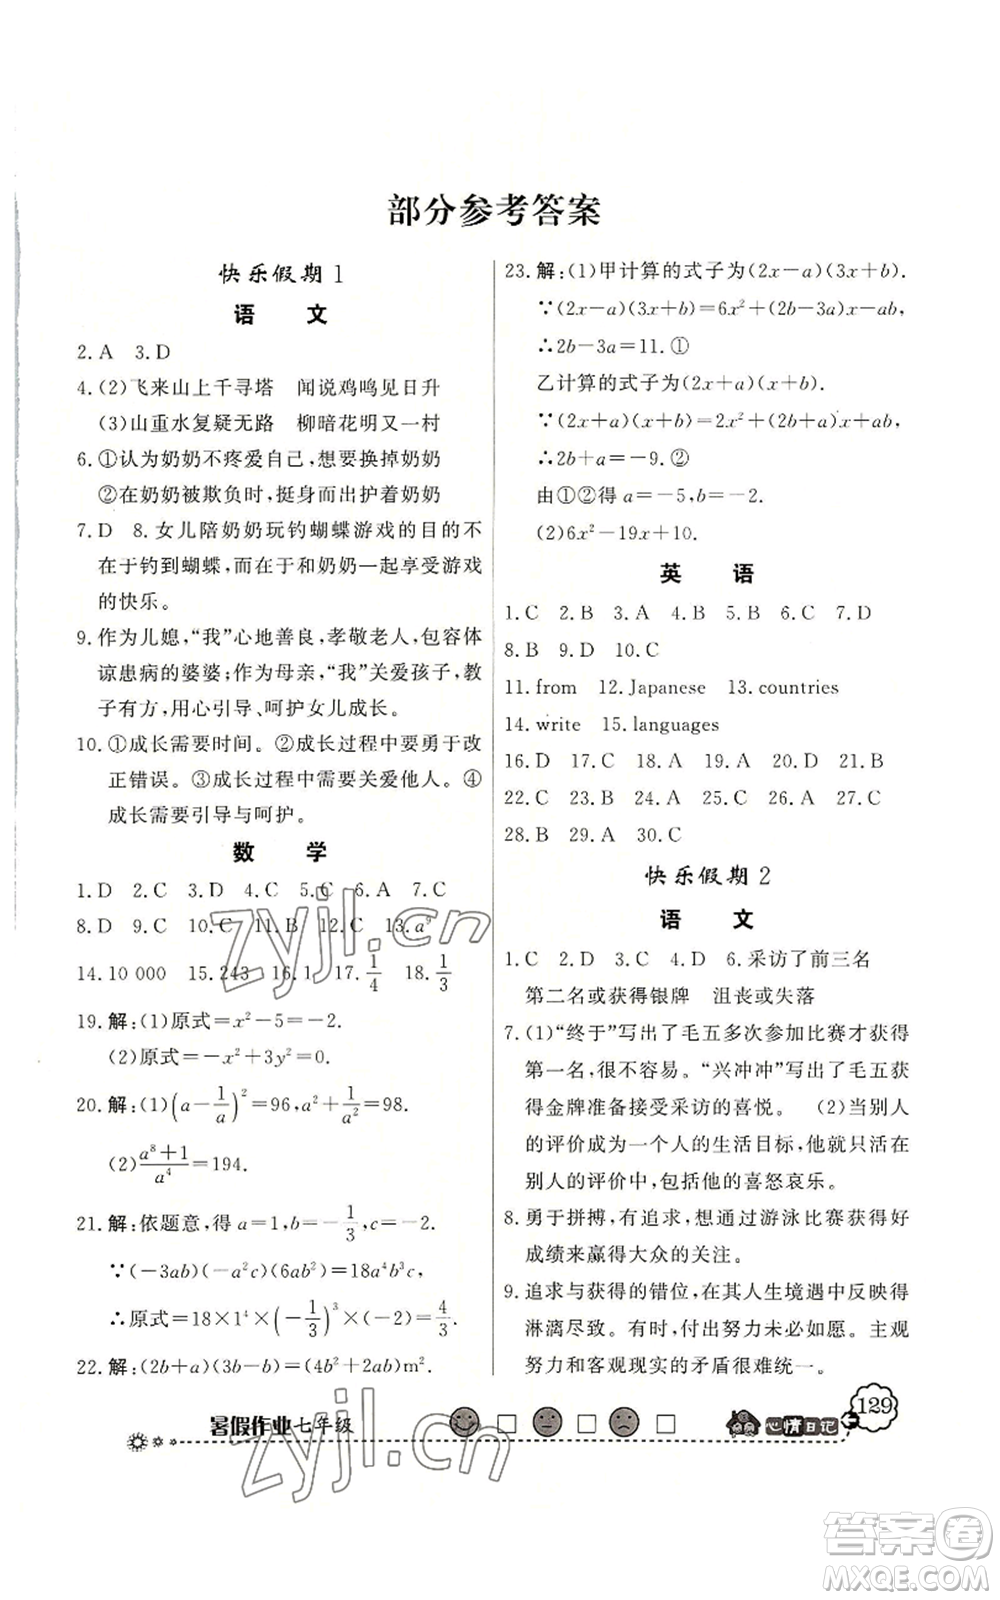 部分参考答案
快乐假期 1
语 文
2. A 3. D
4. (2)飞来山上千寻塔 闻说鸡鸣见日升
(3)山重水复疑无路 柳暗花明又一村
6. ①认为奶奶不疼爱自己,想要换掉奶奶
②在奶奶被欺负时,挺身而出护着奶奶
7. D 8. 女儿陪奶奶玩钓蝴蝶游戏的目的不
在于钓到蝴蝶,而在于和奶奶一起享受游戏
的快乐。
9. 作为儿媳,“我”心地善良,孝敬老人,包容体
谅患病的婆婆;作为母亲,“我”关爱孩子,教
子有方,用心引导、呵护女儿成长。
10. ①成长需要时间。②成长过程中要勇于改
正错误。③成长过程中需要关爱他人。④
成长需要引导与呵护。
数 学
1. D 2. C 3. D 4. C 5. C 6. A 7. C
8. D 9. D 10. C 11. B 12. C 13. a⁹
14. 10 000 15. 243 16. 1 17. 1/4 18. 1/3
19. 解:(1)原式=x²-5=-1.
(2)原式=-x²+3y²=0.
20. 解:(1)(a-1/a)²=96,a²+1/a²=98.
(2)(a⁸+1)/a⁴=194.
21. 解:依题意,得 a=1,b=-1/3,c=-2.
∵(-3ab)(-a²c)(6ab²)=18a⁴b³c,
∴原式=18×1⁴×(-1/3)³×(-2)=4/3.
22. 解:(2b+a)(3b-b)=(4b²+2ab)m².
23. 解:(1)甲计算的式子为(2x-a)(3x+b).
∵(2x-a)(3x+b)=6x²+(2b-3a)x-ab,
∴2b-3a=11. ①
乙计算的式子为(2x+a)(x+b).
∵(2x+a)(x+b)=2x²+(2b+a)x+ab,
∴2b+a=-9. ②
由①②得 a=-5,b=-2.
(2)6x²-19x+10.
英 语
1. C 2. B 3. A 4. B 5. B 6. C 7. D
8. B 9. D 10. C
11. from 12. Japanese 13. countries
14. write 15. languages
16. D 17. C 18. A 19. A 20. D 21. B
22. C 23. B 24. A 25. C 26. A 27. C
28. B 29. A 30. C
快乐假期 2
语 文
1. C 2. D 3. C 4. D 6. 采访了前三名
第二名或获得银牌 沮丧或失落
7. (1)“终于”写出了毛五多次参加比赛才获得
第一名,很不容易。“兴冲冲”写出了毛五获
得金牌准备接受采访的喜悦。 (2)当别人
的评价成为一个人的生活目标,他就只活在
别人的评价中,包括他的喜怒哀乐。
8. 勇于拼搏,有追求,想通过游泳比赛获得好
成绩来赢得大众的关注。
9. 追求与获得的错位,在其人生境遇中反映得
淋漓尽致。有时,付出努力未必如愿。主观
努力和客观现实的矛盾很难统一。
暑假作业七年级
心情日记
129
zyjl.cn
zyjl.cn
答案卷
MXQE.COM